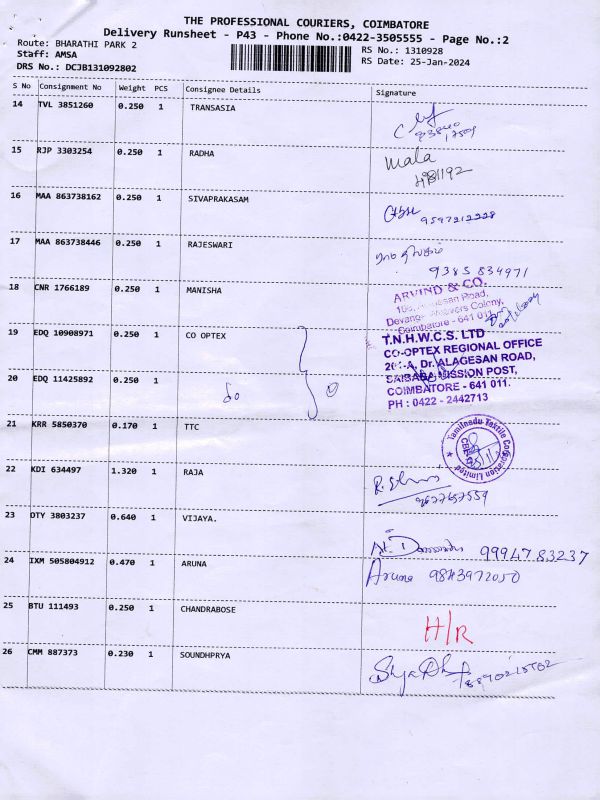 THE PROFESSIONAL COURIERS, COIMBATORE
Delivery Runsheet - P43 - Phone No.:0422-3505555 - Page No.:2
Route: BHARATHI PARK 2
Staff: AMSA
DRS No.: DCJB131092802
RS No.: 1310928
RS Date: 25-Jan-2024
S No Consignment No Weight PCS Consignee Details Signature
14 TVL 3851260 0.250 1 TRANSASIA
15 RJP 3303254 0.250 1 RADHA mala
16 MAA 863738162 0.250 1 SIVAPRAKASAM 9597212228
17 MAA 863738446 0.250 1 RAJESWARI
9385 834971
18 CNR 1766189 0.250 1 MANISHA
ARVIND & CO.
Coimbatore - 641 011
19 EDQ 10908971 0.250 1 CO OPTEX
T.N.H.W.C.S. LTD
CO-OPTEX REGIONAL OFFICE
Dr. ALAGESAN ROAD,
SAIBABA MISSION POST,
COIMBATORE - 641 011.
PH : 0422 - 2442713
20 EDQ 11425892 0.250 1 do
21 KRR 5850370 0.170 1 TTC
Tamilnadu Textile Corporation Limited
22 KDI 634497 1.320 1 RAJA
23 DTY 3803237 0.640 1 VIJAYA.
9994783237
24 IXM 505804912 0.470 1 ARUNA Aruna 9843972050
25 BTU 111493 0.250 1 CHANDRABOSE H/R
26 CMM 887373 0.230 1 SOUNDHPRYA